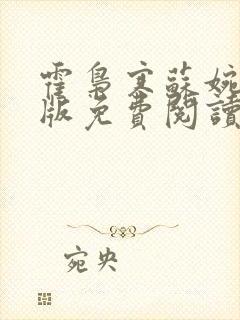 霍梟寒蘇婉
版免費閱讀
宛央